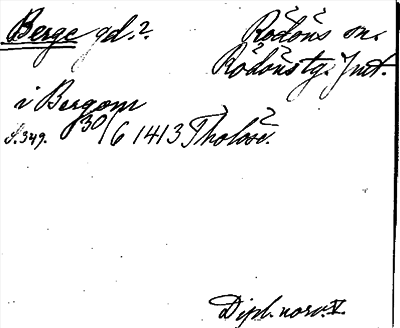 Berge gd.?
Rödöns sn.
Rödöns tg. Jmt.
i Bergom
S. 349. 30/6 1413 Tholosé.
Dipl. norv. V.